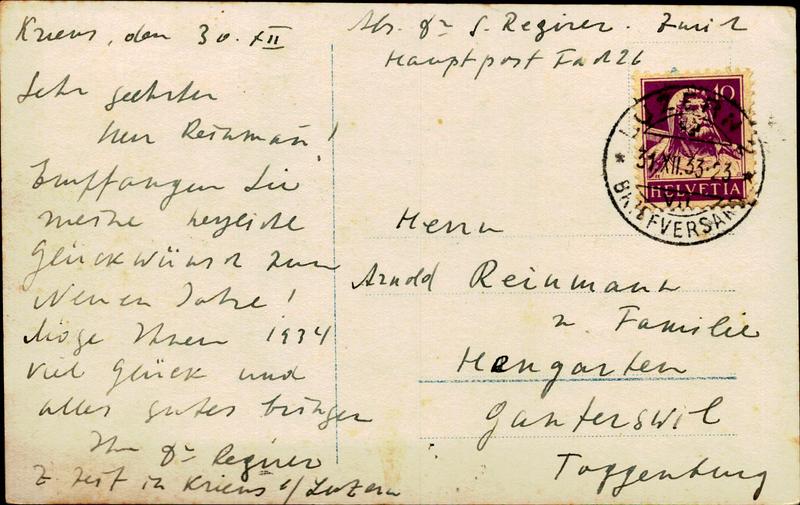 Kriens, den 30. XII
Sehr geehrter
Herr Reinmann!
Empfangen Sie
meine herzliche
Glückwünsch zum
Neuen Jahre!
Möge Ihnen 1934
viel Glück und
alles gutes bringen
Ihr Dr Reginer
z. Zeit in Kriens b/Luzern
Abs. Dr S. Reginer. Zürich
Hauptpost Fach 26
10
HELVETIA
LUZERN 2
31.XII.33-23
VII
BRIEFVERSAND
Herrn
Arnold Reinmann
u. Familie
Hengarten
Ganterswil
Toggenburg